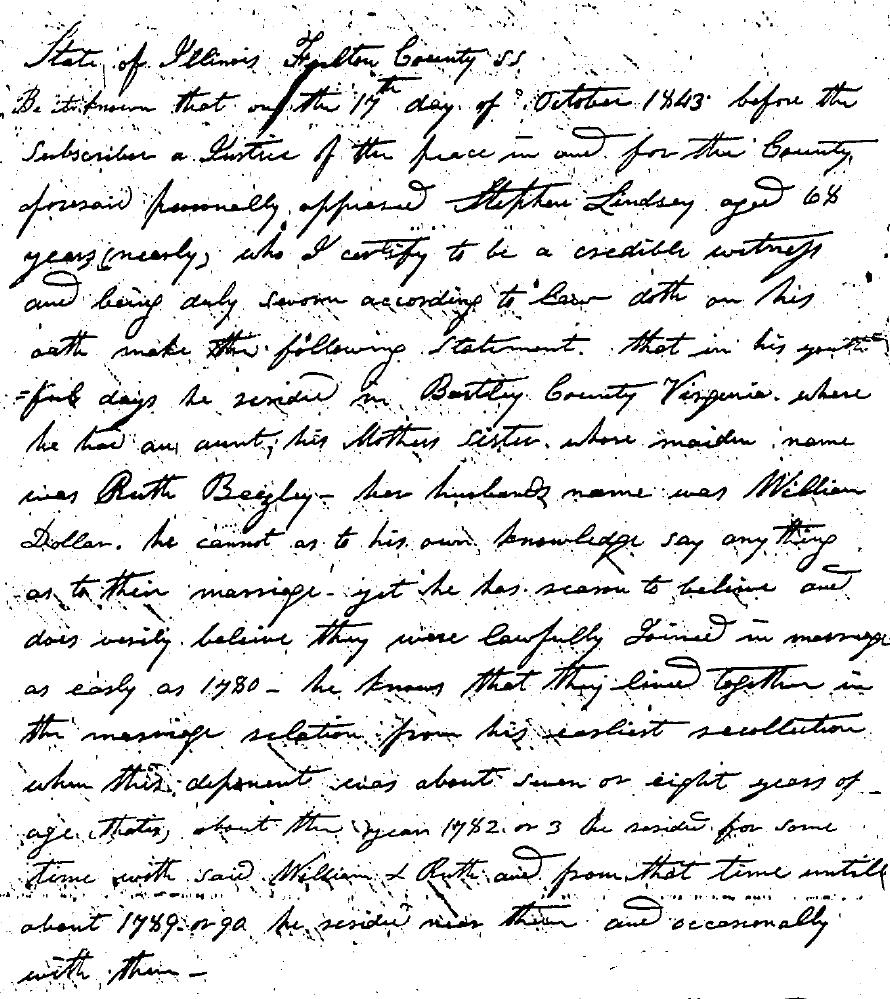 State of Illinois Fulton County SS
Be it known that on the 17th day of October 1843 before the
Subscriber a Justice of the peace in and for the County
aforesaid personally appeared Stephen Lindsey aged 68
years (nearly) who I certify to be a credible witness
and being duly sworn according to law doth on his
oath make the following statement. that in his youth=
=ful days he resided in Bartley County Virginia. where
he had an aunt, his Mothers sister. whose maiden name
was Ruth Beezley - her husbands name was William
Dollar. he cannot as to his own knowledge say any thing
as to their marriage - yet he has reason to believe and
does verily beleive they were lawfully Joined in marriage
as early as 1780 - he knows that they lived together in
the marriage relation from his earliest recollection
when this deponent was about seven or eight years of
age (that is) about the year 1782 or 3 he resided for some
time with said William & Ruth and from that time untill
about 1789 or 90 he resided near them and occasionally
with them -